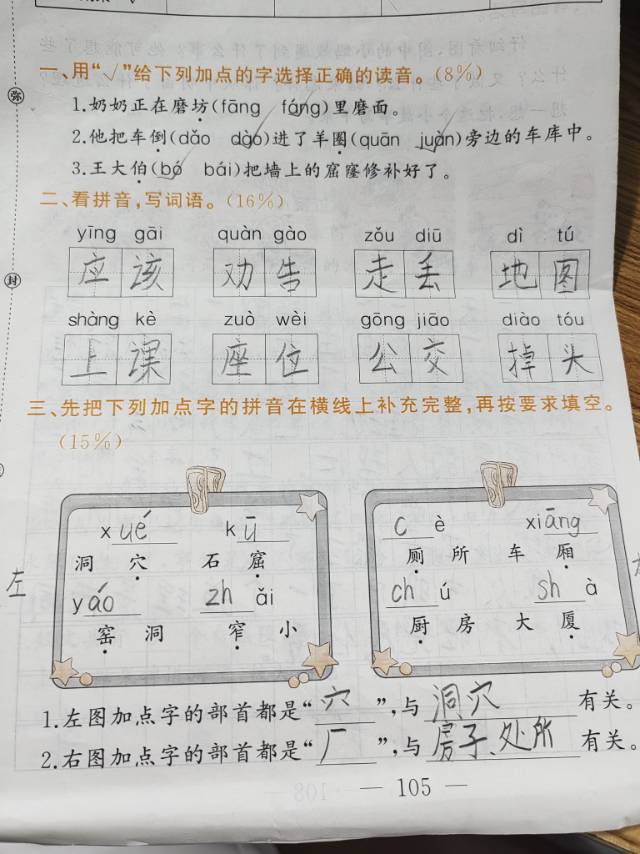 一、用“√”给下列加点的字选择正确的读音。(8%)
1.奶奶正在磨坊(fāng fáng)里磨面。
2.他把车倒(dǎo dào)进了羊圈(quān juàn)旁边的车库中。
3.王大伯(bó bái)把墙上的窟窿修补好了。
二、看拼音,写词语。(16%)
yīng gāi quàn gào zǒu diū dì tú
应该 劝告 走丢 地图
shàng kè zuò wèi gōng jiāo diào tóu
上课 座位 公交 掉头
三、先把下列加点字的拼音在横线上补充完整,再按要求填空。
(15%)
xué kū cè xiāng
洞穴 石窟 厕所 车厢
左
yáo zhǎi chú shà
窑洞 窄小 厨房 大厦
1.左图加点字的部首都是“穴”,与洞穴有关。
2.右图加点字的部首都是“厂”,与房子、处所有关。
— 105 —
弥
封